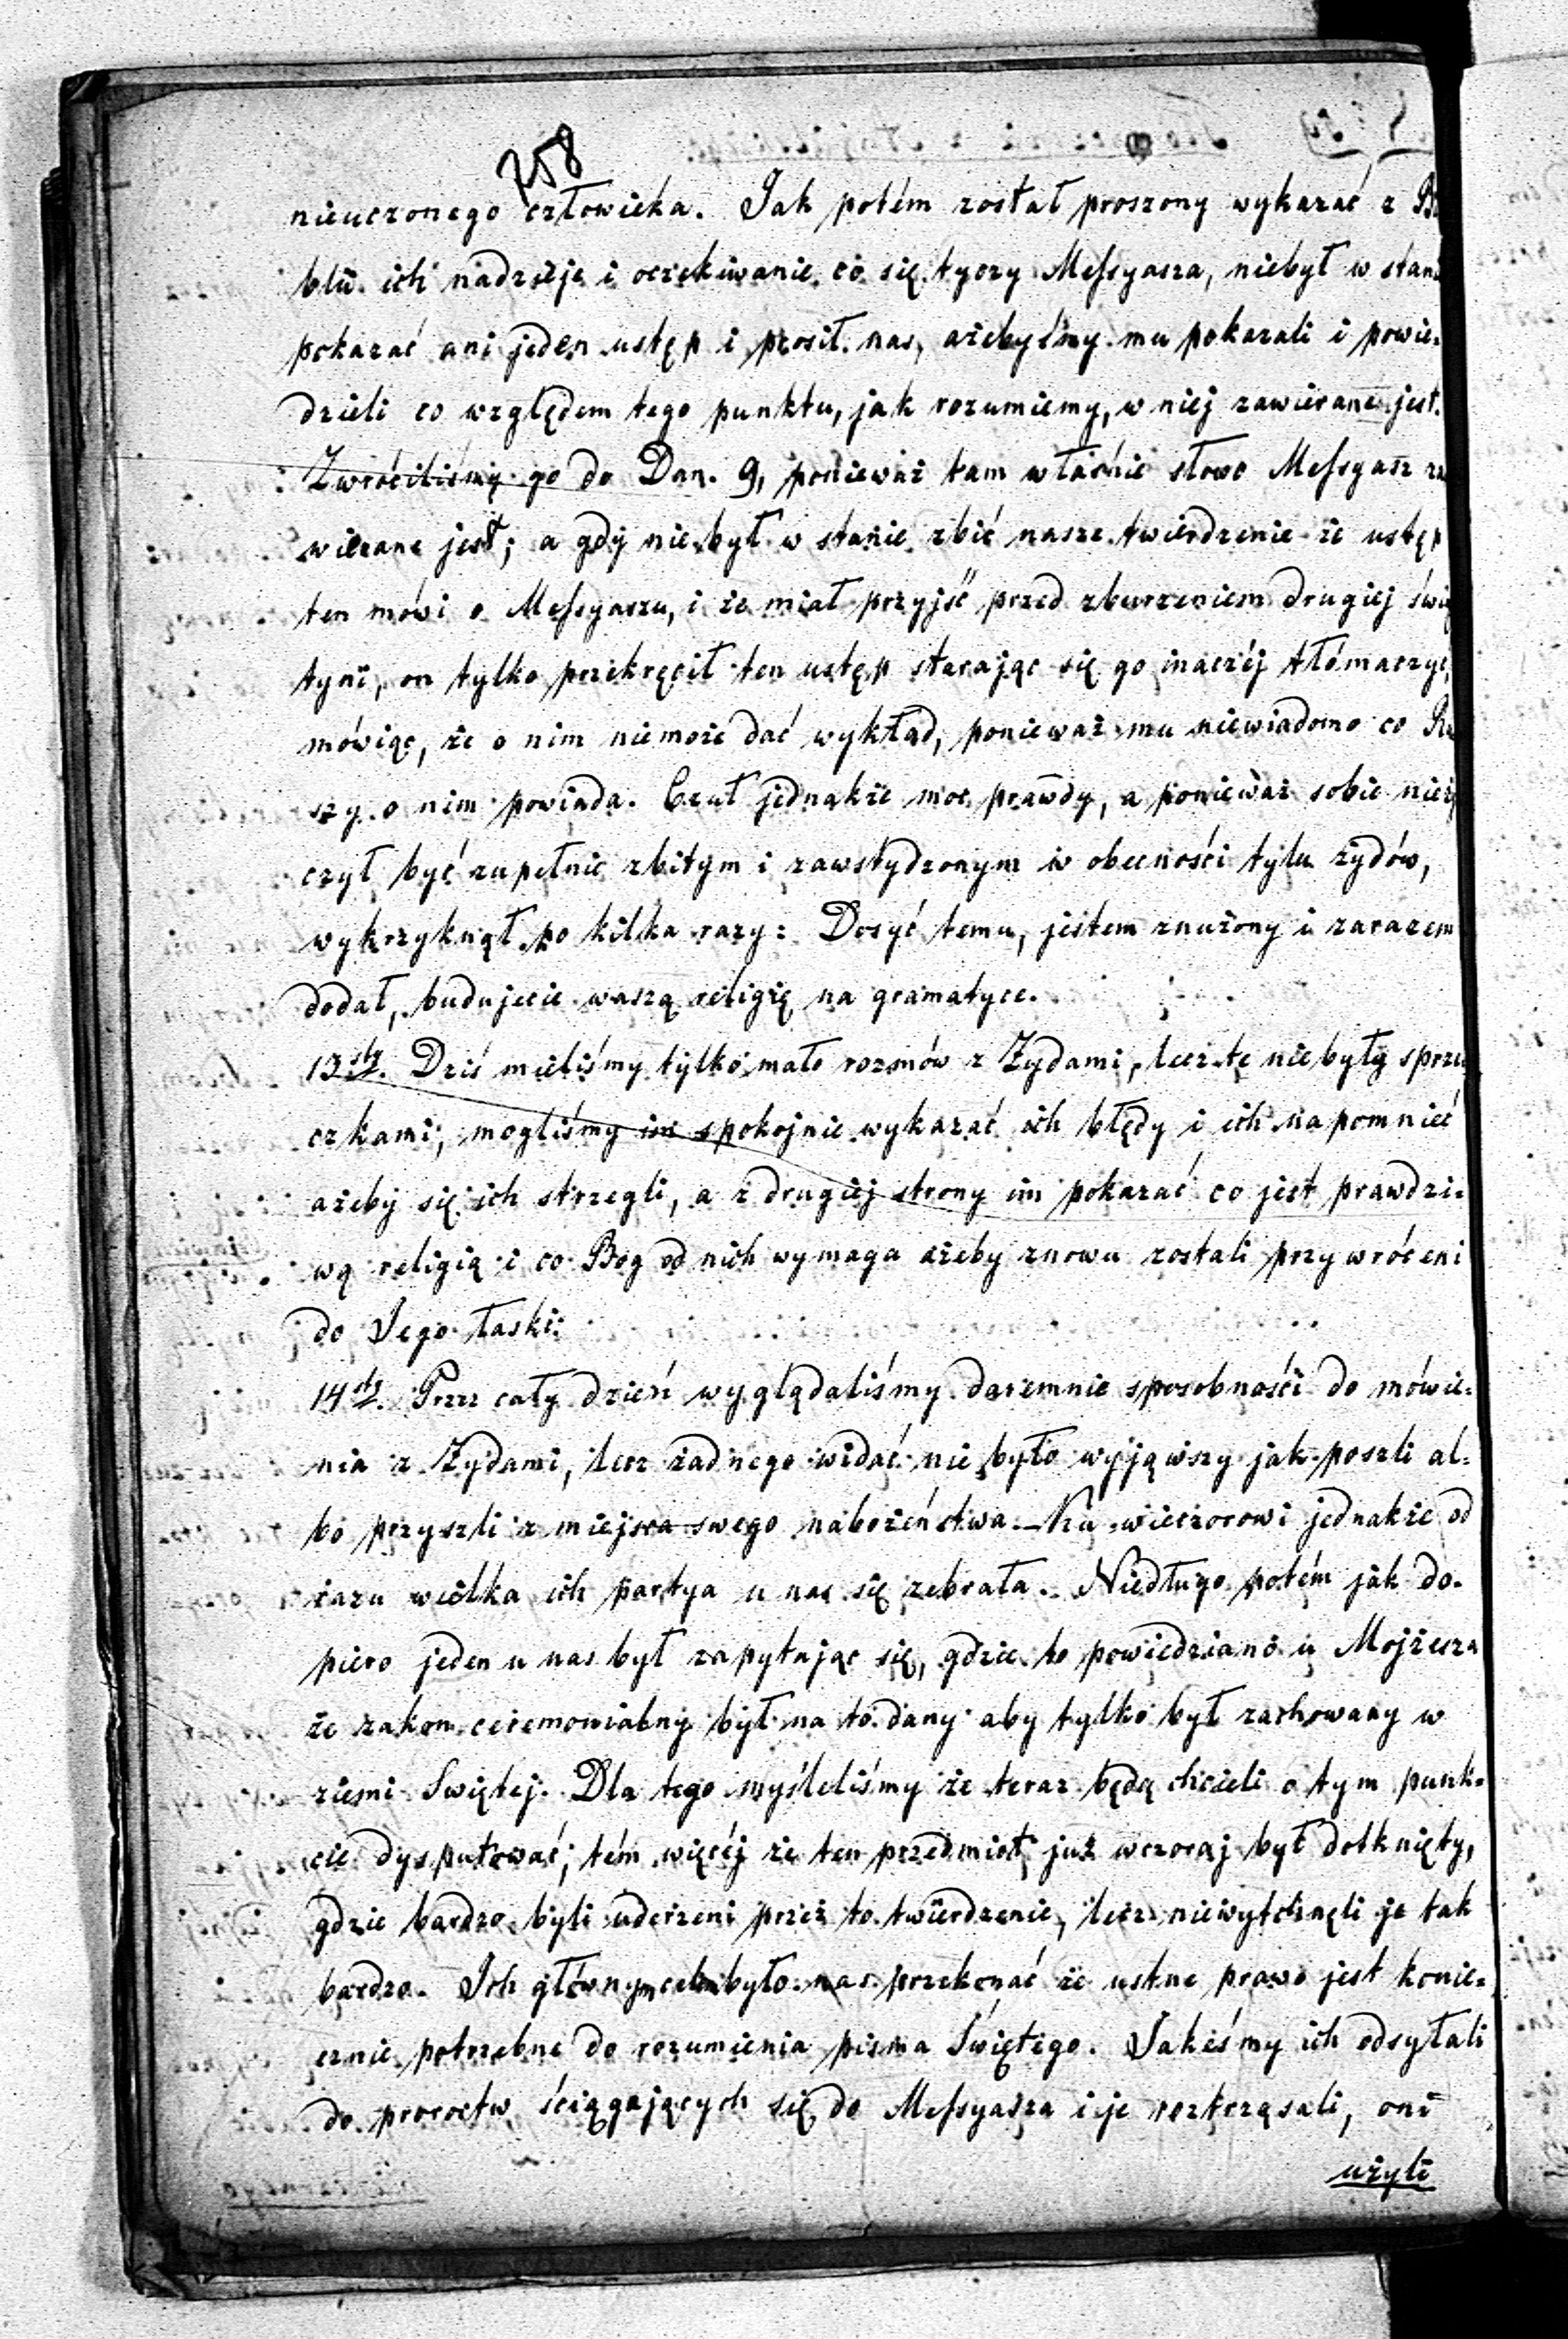 258
nieuczonego człowieka. Jak potém został proszony wykazać z Bi
blii ich nadzieje i oczekiwanie co się tyczy Messyasza, niebył w stani
pokazać ani jeden ustęp i prosił nas, ażebyśmy mu pokazali i powie=
dzieli co względem tego punktu, jak rozumiemy, w niej zawierane jest.
Zwróciliśmy go do Dan. 9, ponieważ tam właśnie słowo Messyasz za
wierane jest; a gdy nie był w stanie zbić nasze twierdzenie że ustęp
ten mówi o Messyaszu, i że miał przyjść przed zburzeniem drugiej świą
tyni, on tylko przekręcił ten ustęp starając się go inaczéj tłómaczyć,
mówiąc, że o nim niemoże dać wykład, ponieważ mu niewiadomo co Ra
szy o nim powiada. Czuł jednakże moc prawdy, a ponieważ sobie nieży
czył być zupełnie zbitym i zawstydzonym w obecności tylu żydów,
wykrzyknął po kilka razy: Dosyć temu, jestem znużony i zarazem
dodał, budujecie waszą religię na gramatyce.
13sty. Dziś mieliśmy tylko mało rozmów z Żydami, lecz te nie były sprze
czkami; mogliśmy im spokojnie wykazać ich błędy i ich napomnieć
ażeby się ich strzegli, a z drugiej strony im pokazać co jest prawdzi=
wą religią i co Bog od nich wymaga ażeby znowu zostali przywróceni
do Jego łaski.
14sty. Przez cały dzień wyglądaliśmy daremnie sposobności do mówie=
nia z Żydami, lecz żadnego widać nie było wyjąwszy jak poszli al=
bo przyszli z miejsca swego nabożeństwa. Ku wieczorowi jednakże od
razu wielka ich partya u nas się zebrała. Niedługo potém jak do=
piero jeden u nas był zapytając się, gdzie to powiedziano u Mojżesza
że zakon ceremonialny był na to dany aby tylko był zachowany w
ziemi Swiętej. Dla tego myśleliśmy że teraz będą chcieli o tym punk=
cie dysputować; tém więcéj że ten przedmiot już wczoraj był dotknięty,
gdzie bardzo byli uderzeni przez to twierdzenie, lecz niewytchnęli je tak
bardzo. Ich głównym celem było nas przekonać że ustne prawo jest konie=
cznie potrzebne do rozumienia pisma Świętego. Jakeśmy ich odsyłali
do proroctw ściągających się do Messyasza i je roztrząsali, oni
użyli